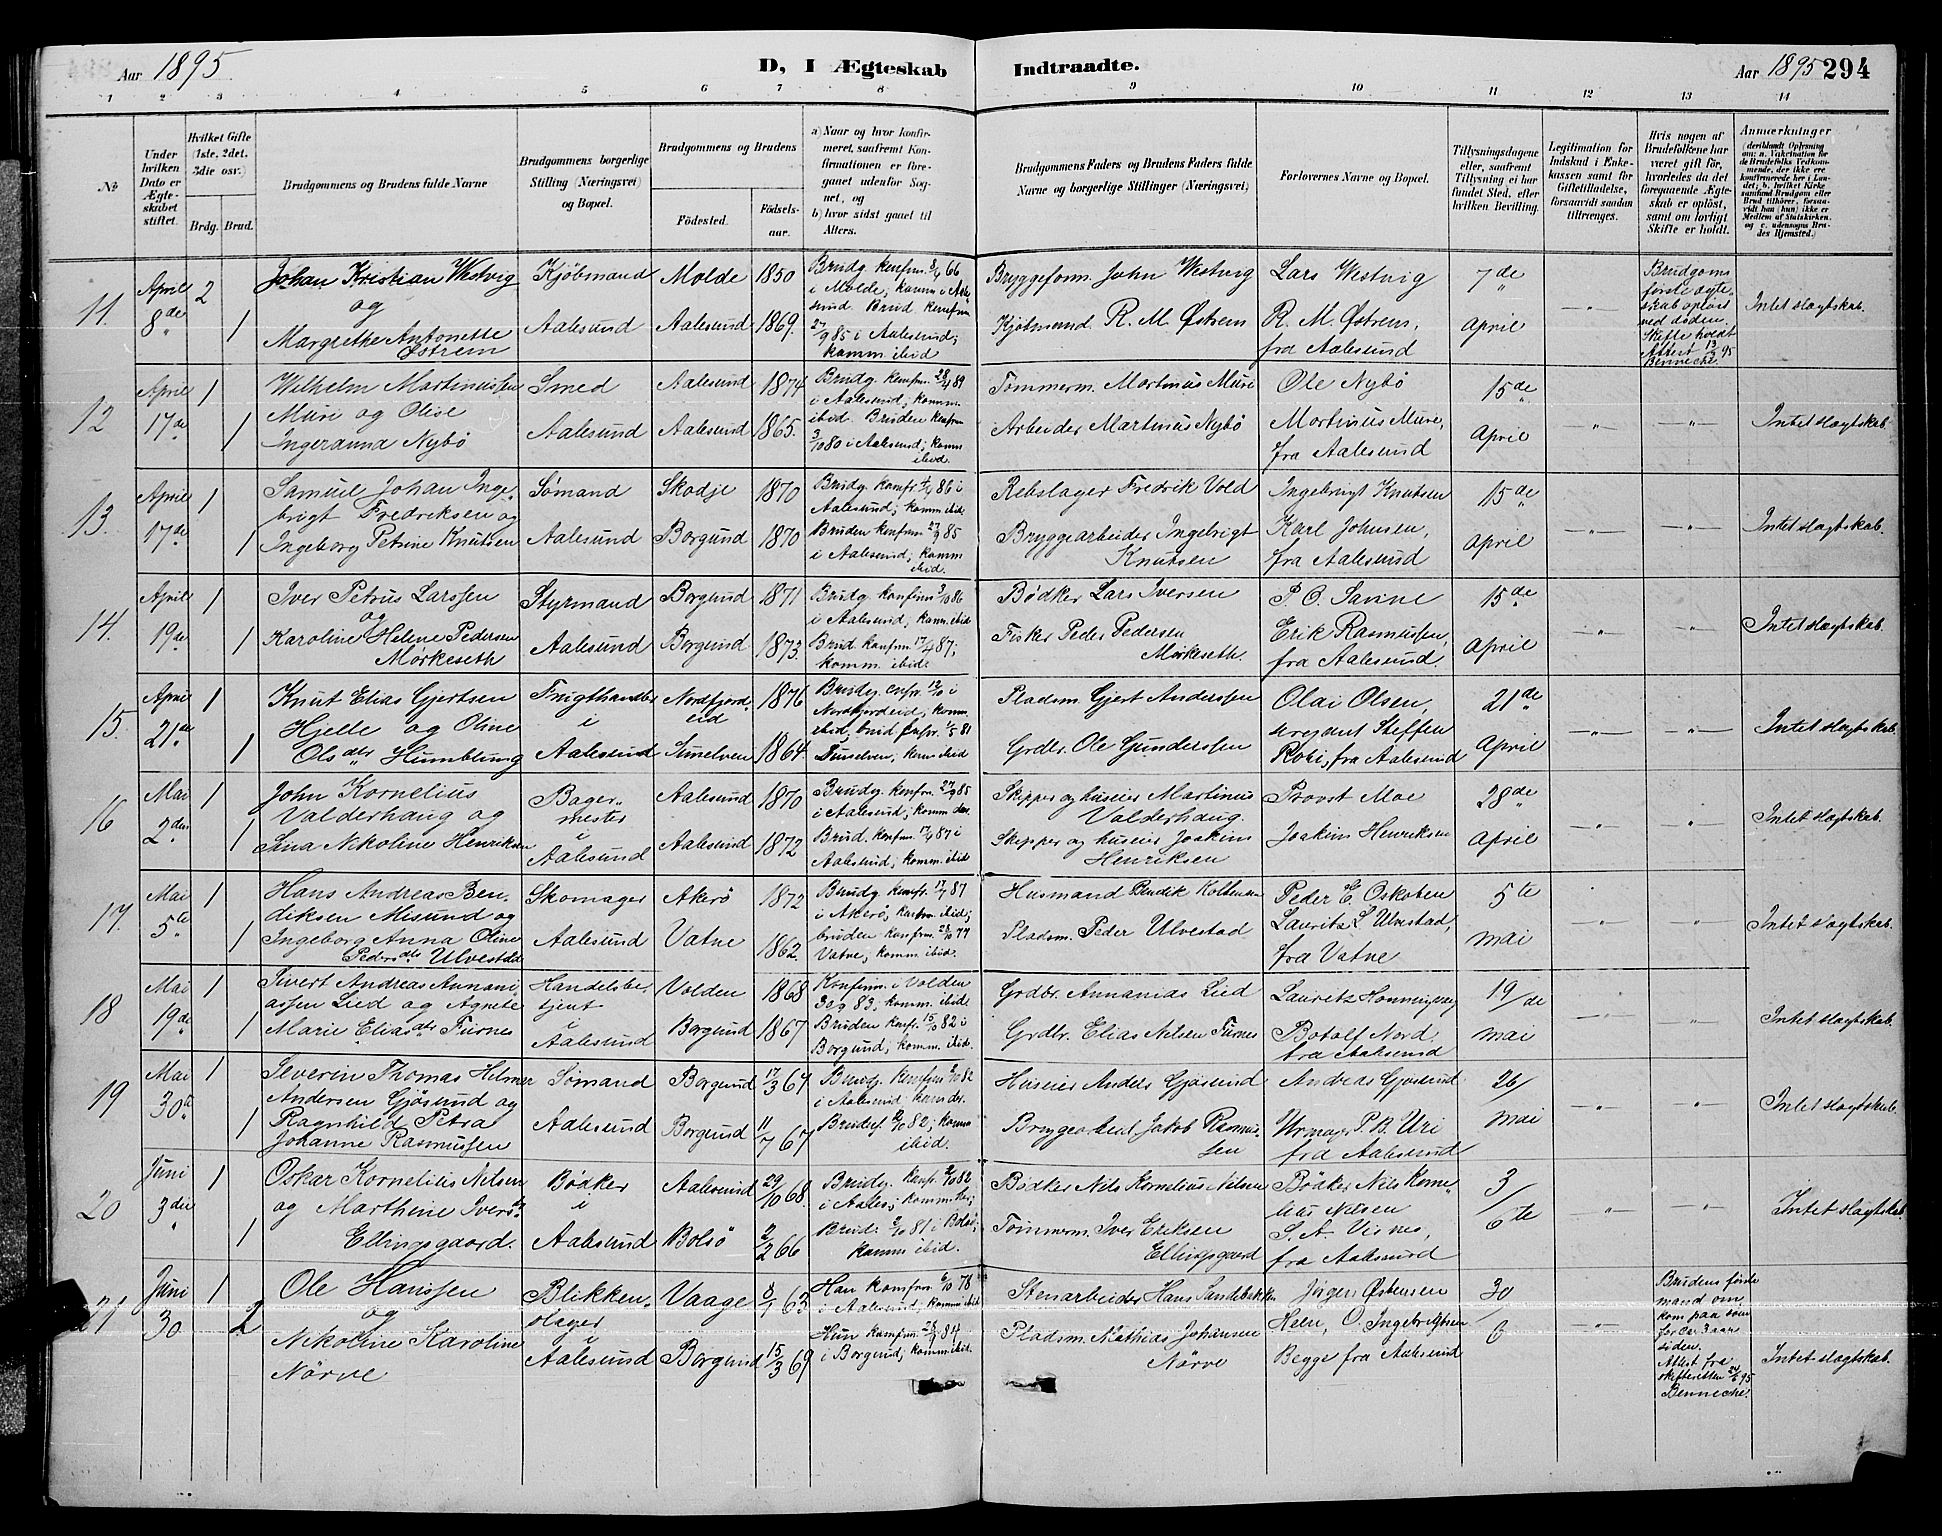 Aar 1895.
D, I Ægteskab Indtraadte.
Aar 1895 294
1 2 3 4 5 6 7 8 9 10 11 12 13 14
№
Under hvilken Dato er Ægteskabet stiftet.
Hvilket Gifte (1ste, 2det, 3die osv.)
Brdg. Brud.
Brudgommens og Brudens fulde Navne
Brudgommens borgerlige Stilling (Næringsvei) og Bopæl.
Brudgommens og Brudens
Fødested. Fødselsaar.
a) Naar og hvor konfirmeret, saafremt Konfirmationen er foregaaet udenfor Sognet, og
b) hvor sidst gaaet til Alters.
Brudgommens Faders og Brudens Faders fulde Navne og borgerlige Stillinger (Næringsvei)
Forlovernes Navne og Bopæl.
Tillysningsdagene eller, saafremt Tillysning ei har fundet Sted, efter hvilken Bevilling.
Legitimation for Indskud i Enkekassen samt for Giftetilladelse, forsaavidt saadan tiltrænges.
Hvis nogen af Brudefolkene har været gift før, hvorledes da det foregaaende Ægteskab er opløst, samt om lovligt Skifte er holdt.
Anmærkninger
(deriblandt Oplysning om: a. Vakcination for de Brudefolks Vedkommende, der ikke ere konfirmerede her i Landet; b. hvilket Kirkesamfund Brudgom eller Brud tilhører, forsaavidt han (hun) ikke er Medlem af Statskirken, og c. udensogns Brudes Hjemsted.)
11. April 8de 2 Johan Kristian Westvig Kjøbmand Molde 1850 Brudg. konfrm. 8/4 66
og i Molde; komm. i Aalesund
1 Margrethe Antonette Østrem Aalesund Aalesund 1869. Brud konfrm 27/9 85 i Aalesund; komm. ibid
Bryggeform. John Westvig Lars Westvig 7de April
Kjøbmand R. M. Østrem R. M. Østrem, fra Aalesund
Brudgoms første ægteskab opløst ved døden Skifte holdt Attest 13/3 95 Benneche.
Intet slægtskab.
12 April 17de 1 Wilhelm Martinussen Smed Aalesund 1874 Brudg. konfrm. 28/4 89
Mure og Olive i Aalesund; komm. ibid.
1 Ingeranna Nybø Aalesund Aalesund 1865. Bruden konfrm 3/10 80 i Aalesund; komm ibid.
Tømmerm. Martinus Mure Ole Nybø 15de April
Arbeider Martinus Nybø Martinus Mure, fra Aalesund
Intet slægtskab.
13. April 17de 1 Samuel Johan Ingebrigt Fredriksen og Sømand Skodje 1870 Brudg. konfr. 4/4 86 i Aalesund; komm. ibid
1 Ingeborg Petrine Knutsen Aalesund Borgund 1870 Bruden konfrm 27/9 85 i Aalesund; komm ibid.
Rebslager Fredrik Vold Ingebrigt Knutsen 15de April
Bryggearbeider Ingebrigt Knutsen Karl Johnsen, fra Aalesund
Intet slægtskab.
14. April 19de 1 Iver Petrus Larssen Styrmand Borgund 1871 Brudg. konfirm 3/10 86
og i Aalesund; komm. ibid
1 Karoline Helene Pedersen Mørkeseth Aalesund Borgund 1873. Brud. konfrm. 17/4 87; komm. ibid.
Bødker Lars Iversen P. O. Savine 15de April
Fisker Peder Pedersen Mørkeseth. Erik Rasmussen, fra Aalesund.
Intet slægtskab.
15. April 21de 1 Knut Elias Gjertsen Hjelle og Oline Frugthandler i Nordfjordeid 1876
1 Olsdtr Humblung Aalesund Sunelven 1864. Sunelven; komm ibid
Pladsm. Gjert Anderssen Olai Olsen, 21de April
Grdbr. Ole Gunderssen sergeant Steffen fra Aalesund
Intet slægtskab.
16 Mai 2den 1 John Kornelius Valderhaug og Bagermester i Aalesund 1870 Brudg. konfrm. 27/9 85 i Aalesund; komm. der.
1 Sina Nikoline Henriksen Aalesund Aalesund 1872 Brud konfrm. 17/4 87 i Aalesund; komm. ibid
Skipper og huseier Martinus Valderhaug. Provst Moe 28de April
Skipper og huseier Joakim Henriksen Joakim Henriksen
Intet slægtskab.
17. Mai 5te 1 Hans Andreas Bendiksen Misund og Skomager Akerø 1872 Brudg. konfr. 17/4 87 i Akerø; komm. ibid;
1 Ingeborg Anna Oline Pedersdtr Ulvestad Aalesund Vatne 1862. bruden konfrm. 28/10 77 Vatne; komm. ibid.
Husmand Bendik Peder E. 5te mai
Pladsm. Peder Ulvestad Laurits L. Ulvestad, fra Vatne
Intet slægtskab.
18 Mai 19de 1 Sivert Andreas Annaniassen Lied og Agnete Handelsbetjent i Volden 1868 Konfirm. i Volden 30/9 83. komm. ibid
1 Marie Eliasdtr Furnes Aalesund Borgund 1867 Bruden konf. 15/10 82 i Borgund; komm. ibid.
Grdbr. Annanias Lied Lauritz Honningsvey 19/de mai
Grdbr. Elias Nilsen Furnes Botolf Nord fra Aalesund
Intet slægtskab.
19 Mai 30te 1 Severin Thomas Helmer Andersen Gjøsund og Sømand Borgund 17/3 67
1 Ragnhild Petra Johanne Rasmussen Aalesund Borgund 11/7 67
Huseier Anders Gjøsund Andreas Gjøsund. 26/ Mai
Bryggearbeid. Jakob Rasmussen Urmager P. B. Uri fra Aalesund
Intet slægtskab
20 Juni 3die 1 Oskar Kornelius Nilsen Bødker i Aalesund 29/10 68.
1 og Marthine Iversdtr Ellingsgaard. Aalesund Bolsø 2/2 66 komm ibid.
Bødker Nils Kornelius Nilsen Bødker Nils Kornelius Nilsen 3/6te
Tømmerm. Iver Eriksen Ellingsgaard S. A. Visnes, fra Aalesund
Intet slægtskab.
21 Juni 30 1 Ole Hanssen Blikkenslager Vaage 8/1 63 Han konfrm. 6/10 78
og i i Aalesund; komm ibid
2 Nikoline Karoline Nørve Aalesund Borgund 15/3 69 Hun konfrm. 28/9 84 i Borgund; komm. ibid.
Stenarbeider Hans Sandebakken Jørgen Østensen 30
Pladsm. Mathias Johansen Nørve O. Ingebrigtsen 6
Begge fra Aalesund
Brudens første mand omkom paa søen for Ca. 3 aar siden. Attest fra skifteretten 24/6 95 Benneche.
Intet slægtskab.